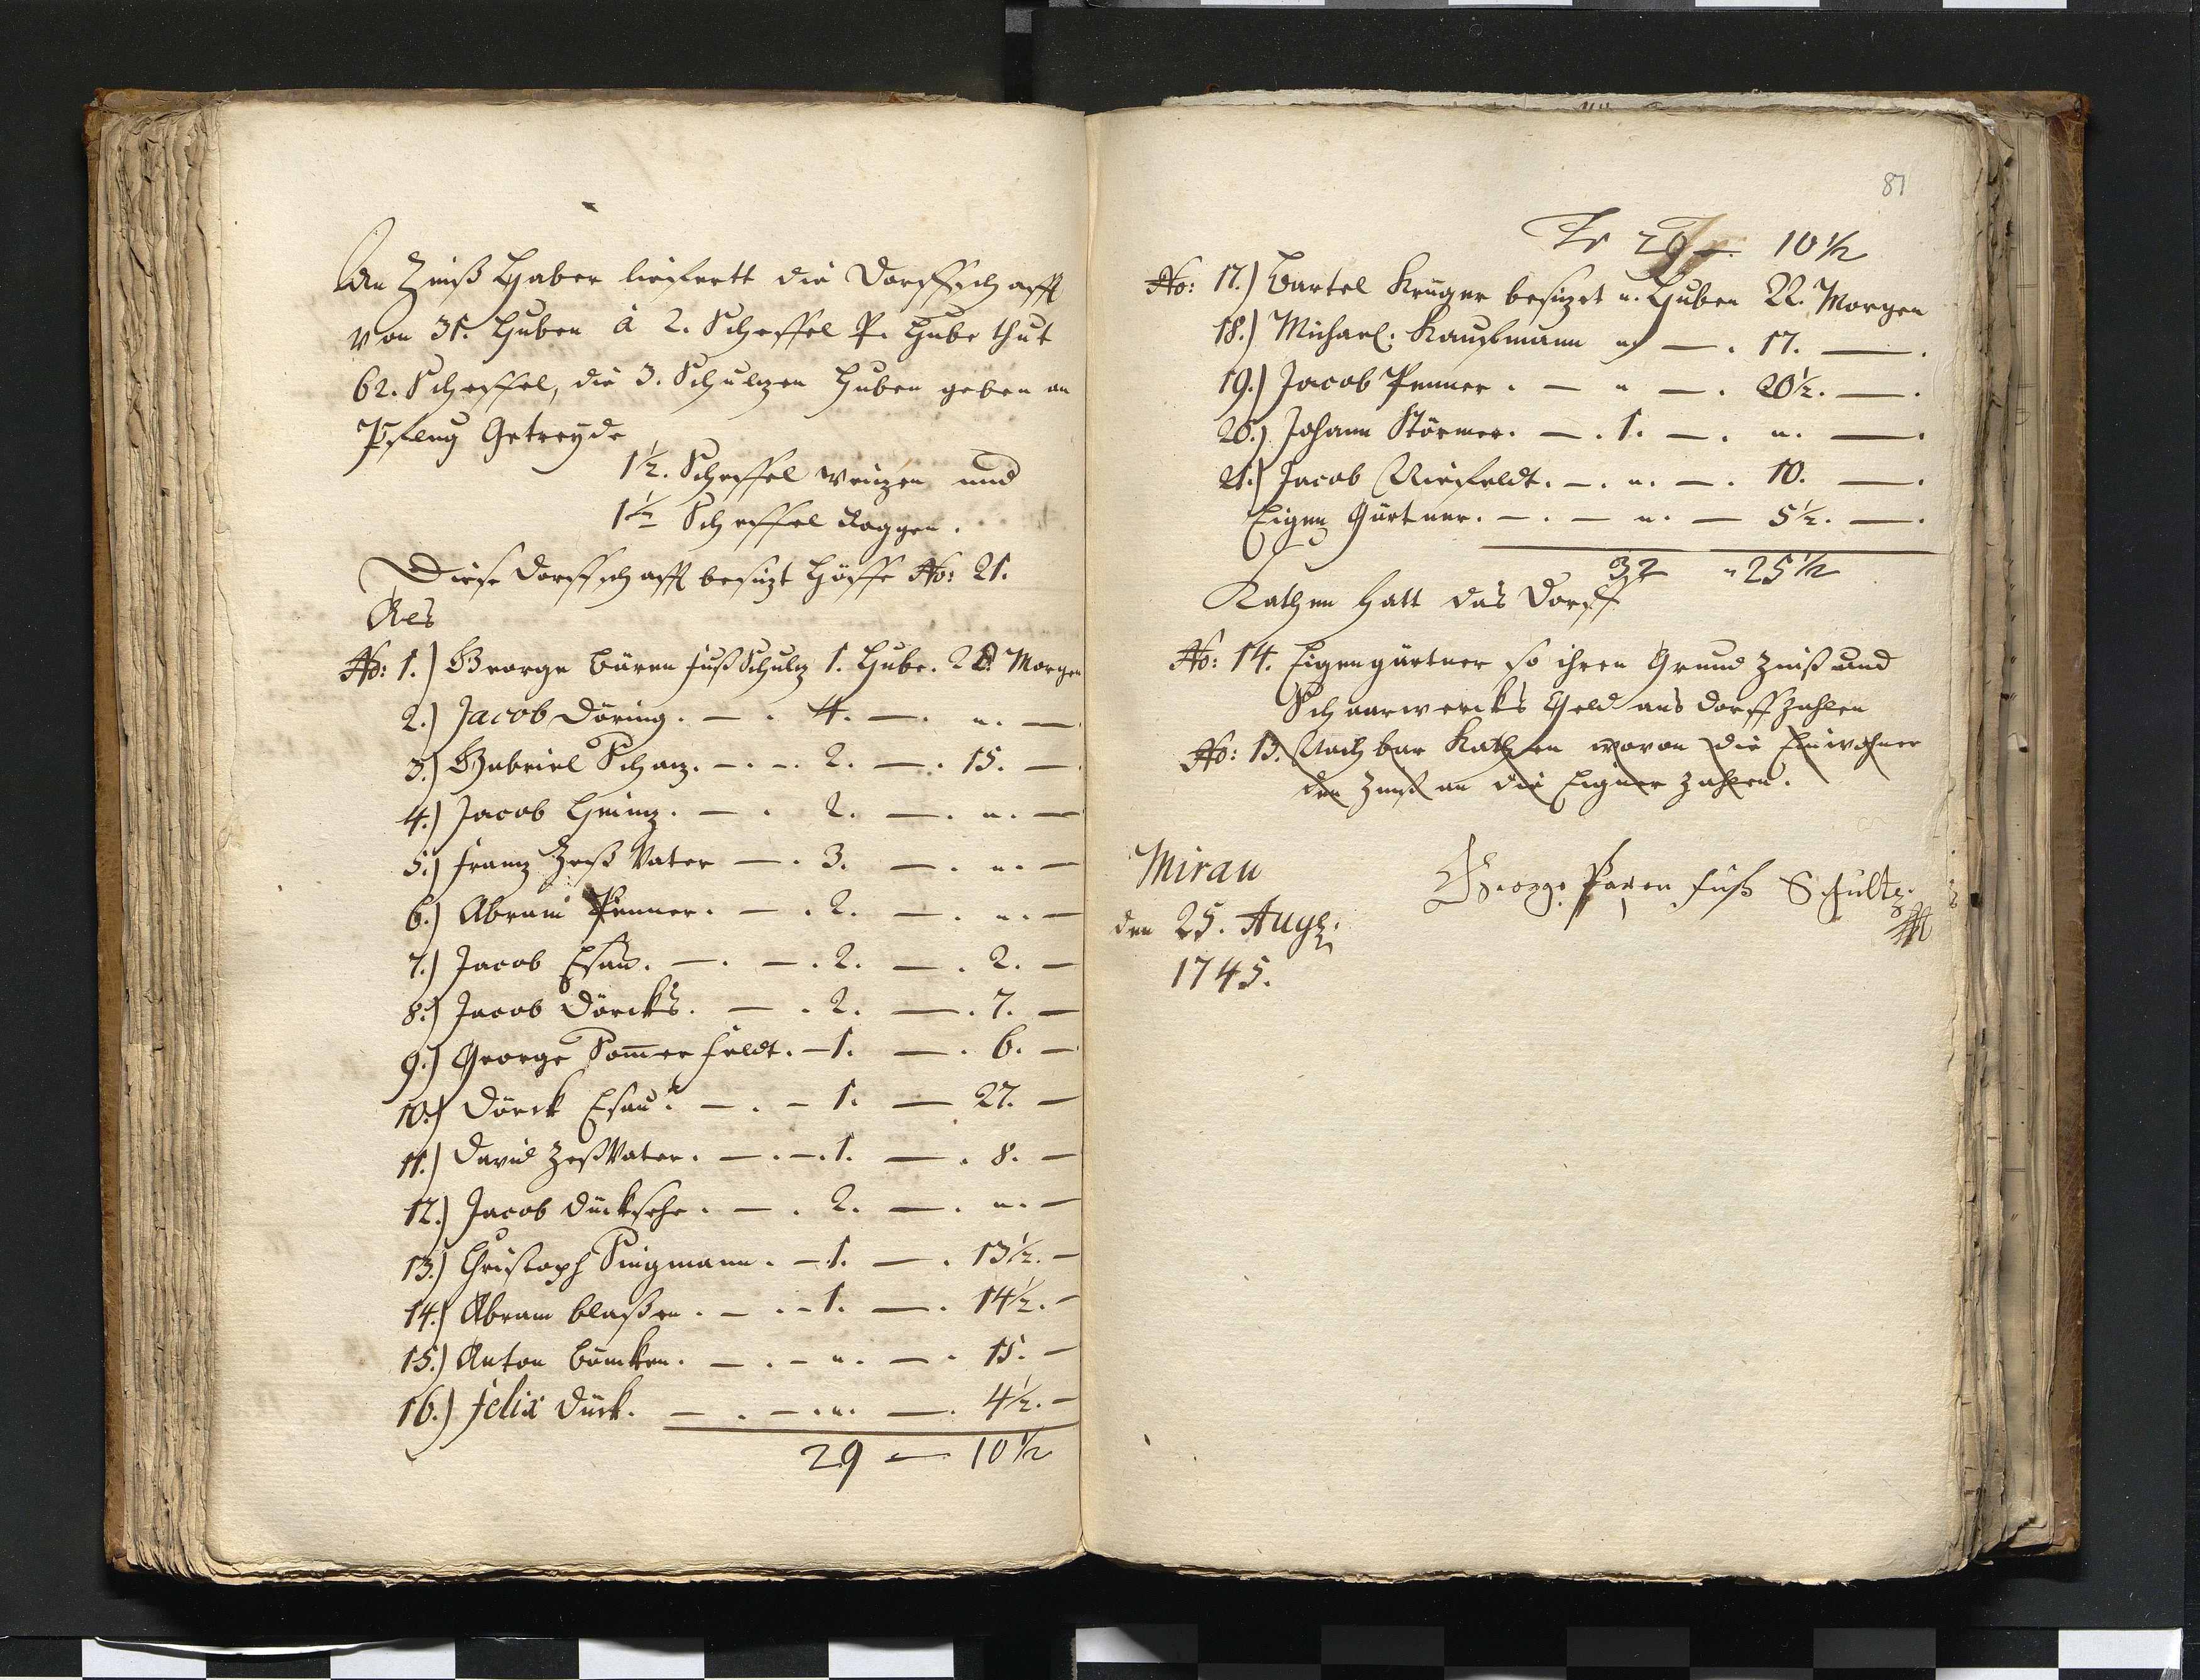 An Zinß Haber liefertt die Dorffschafft
von 31. Huben à 2. Scheffel P. Hube thut
62. Scheffel, die 3. Schultzen Huben geben an
Pflug Getreyde
1½. Scheffel weitzen und
1½ Scheffel Roggen.
Diese Dorffschafft besitzt Höffe No: 21.
Als
No: 1.) George Bären fuß Schultz 1. Hube. 20 Morgen
2.) Jacob Döring. — . 4. — . ". —
3.) Gabriel Schanz. — . — . 2. — . 15. —
4.) Jacob Heintz. — . 2. — . ". —
5.) Frantz Zeß Vater — . 3. — . ". —
6.) Abram Penner. — . 2. — . ". —
7.) Jacob Esau. — . — . 2. — . 2. —
8.) Jacob Dörcks. — . 2. — . 7. —
9.) George Som̄erfeldt. — 1. — . 6. —
10.) Dörck Esau. — . — 1. — 27. —
11.) David Zeß Vater. — . — . 1. — . 8. —
12.) Jacob Dücksche. — . 2. — . ". —
13.) Christoph Singmann. — 1. — . 13½. —
14.) Abram Claßen. — . — 1. — . 14½. —
15.) Anton Bömken. — . — ". — . 15. —
16.) Felix Dück. — . — . ". — . 4½. —
29 — 10½
87
Tr 29 — 10½
No: 17.) Bartel Krüger besitzet ". Huben 22. Morgen
18.) Michael: Kauffmann " — . 17. — .
19.) Jacob Penner. — " — . 20½. — .
20.) Johann Störmer. — . 1. — . ". — .
21.) Jacob Niefeldt. — . ". — . 10. — .
Eigen Gärtner. — . — ". — 5½. — .
32 " 25½
Kathen hatt das Dorff
No: 14. Eigengärtner so ihren Grund Zinß und
Scharwercks Geld ans Dorff Zahlen
No: 13. Nachbar Kathen wovon die Einwohner
den Zinß an die Eigner Zahlen.
Mirau
den 25. Aug:
1745.
George fuß Schultz